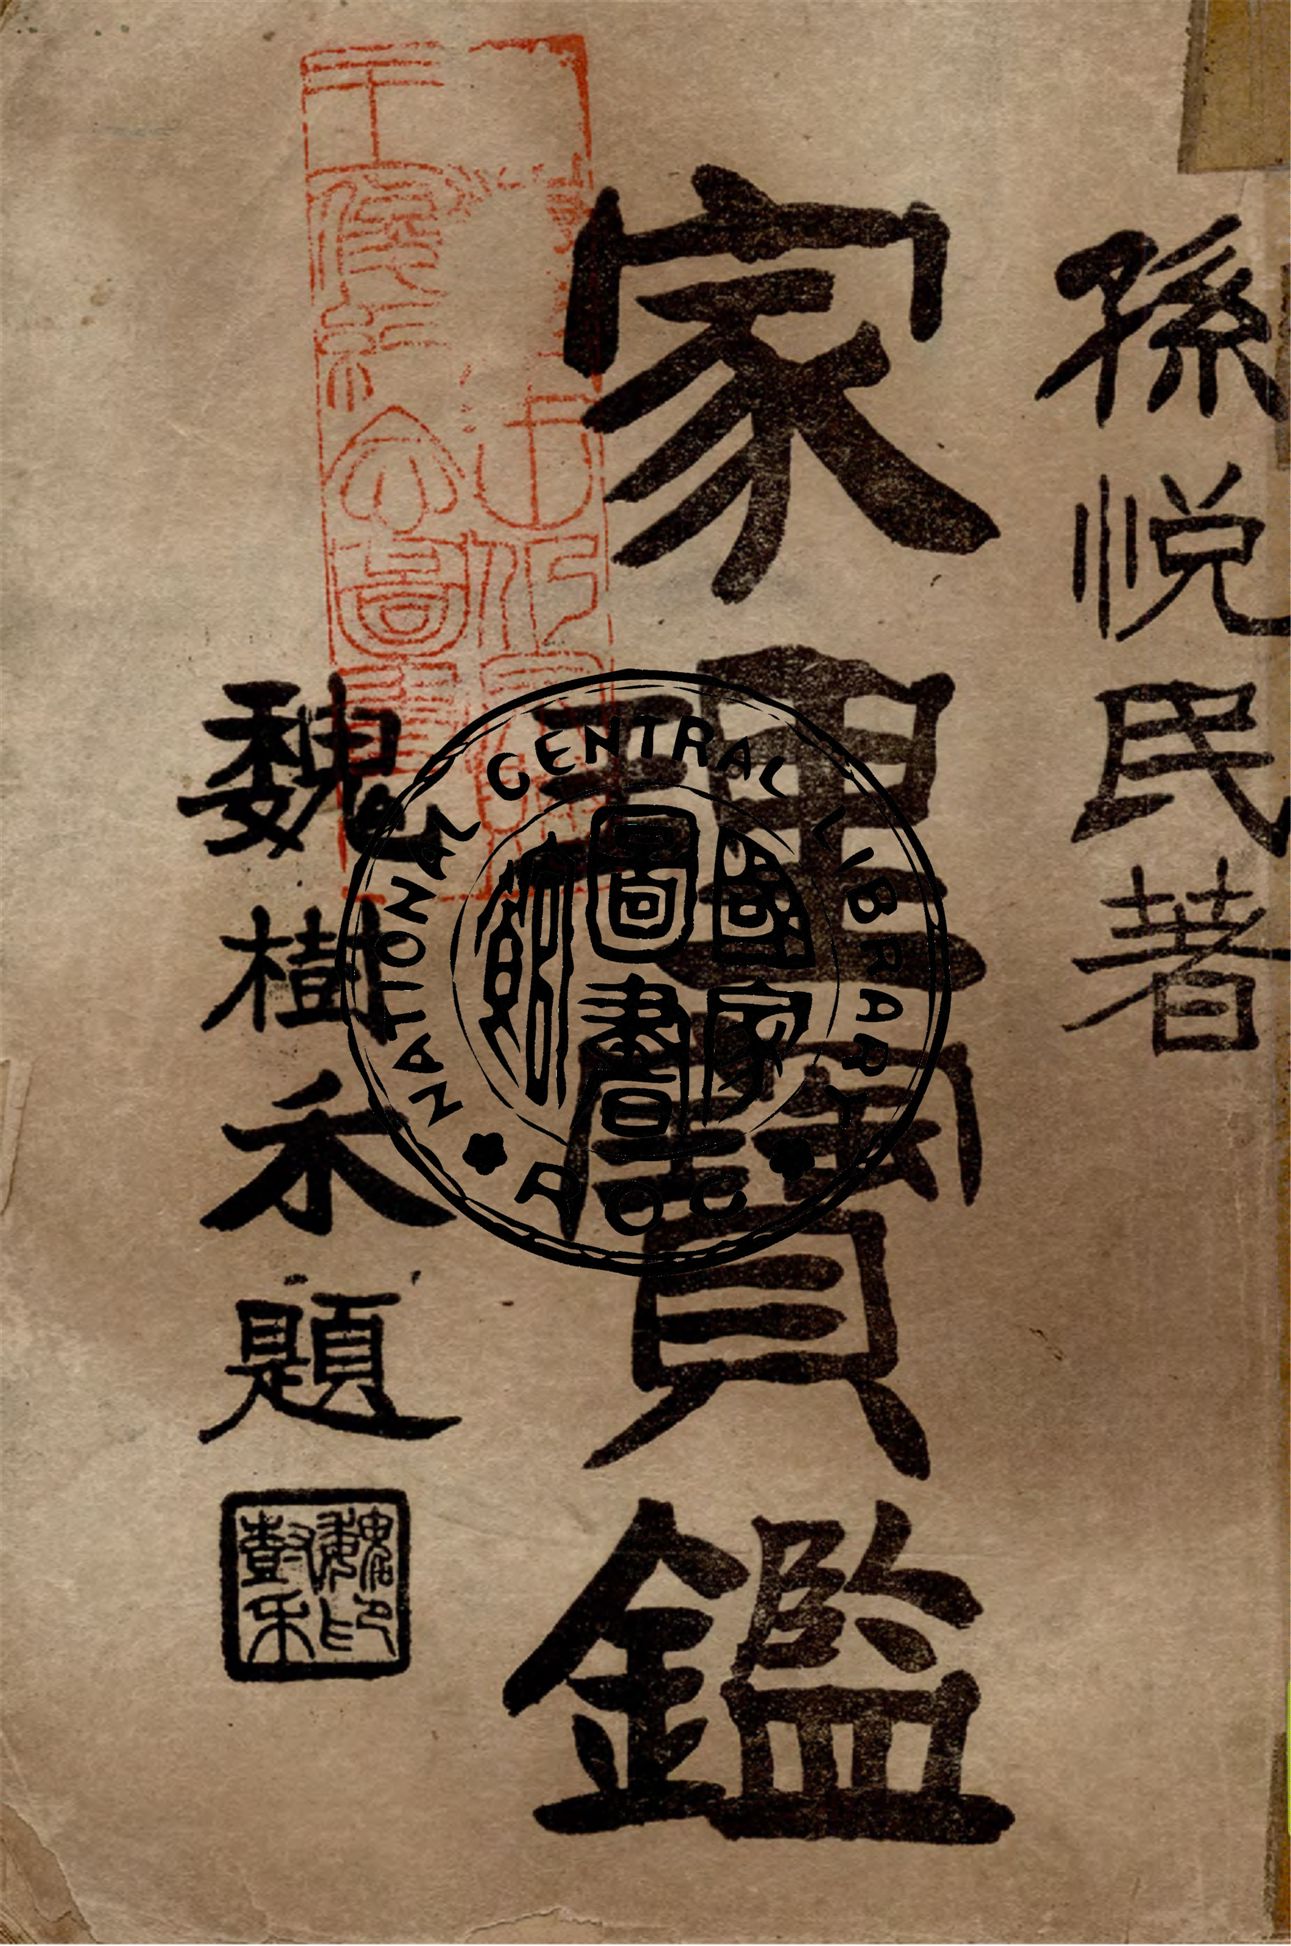 孫悅民著
家理寶鑑
魏樹禾題
魏印
樹禾
NATIONAL CENTRAL LIBRARY
國家
圖書
館
ROC